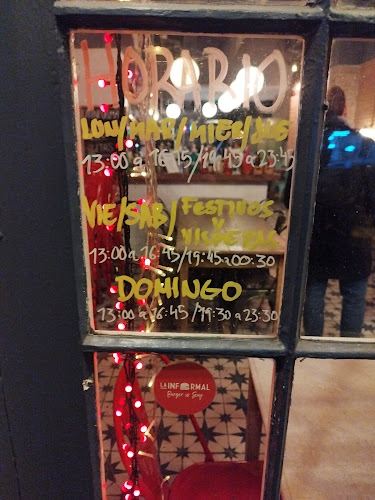 HORARIO
LUN/MAR/MIER/JUE
13:00 a 16:45/19:45 a 23:45
VIE/SAB/FESTIVOS
Y
VISPERAS
13:00 a 16:45/19:45 a 00:30
DOMINGO
13:00 a 16:45/19:30 a 23:30
LA INFORMAL
Burger in Soup